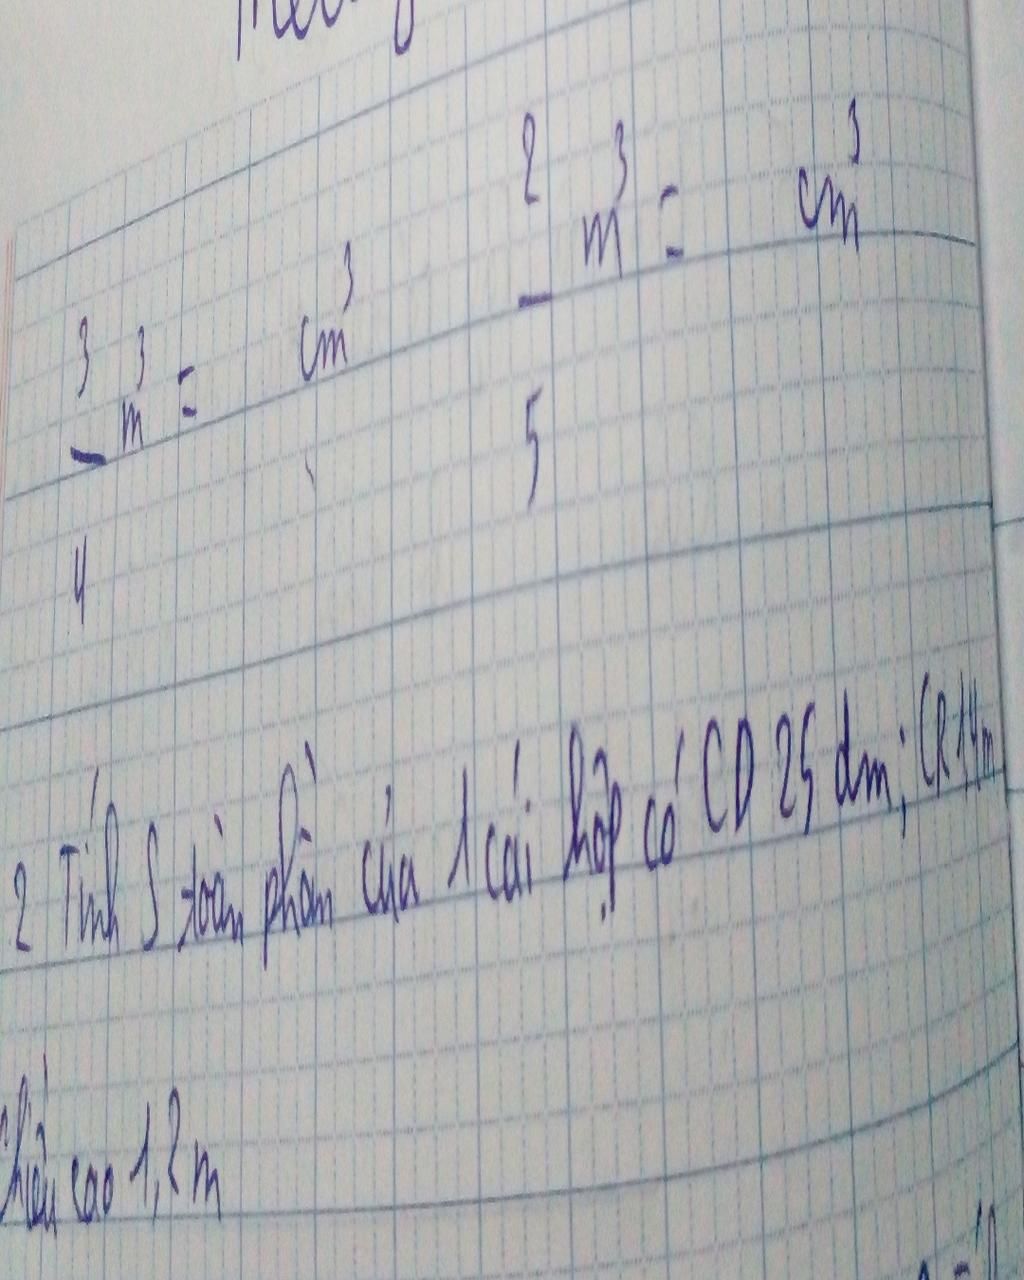 3/4 m³ = cm³ 2/5 m³ = cm³
2 Tính S toàn phần của 1 cái hộp có CD 25 dm; CR 1,4m
chiều cao 1,2 m